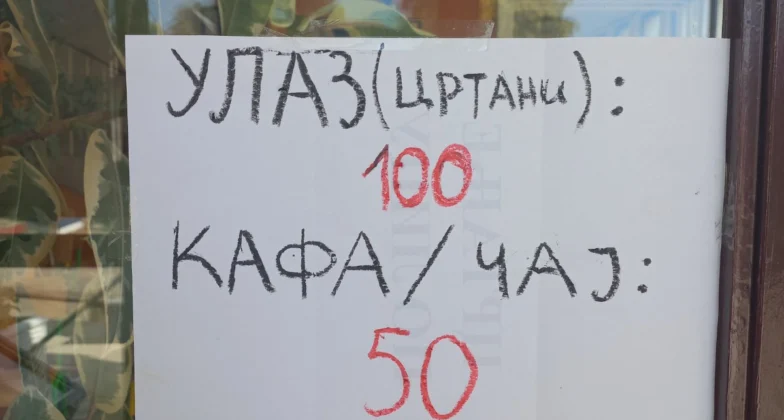 УЛАЗ (ЦРТАНИ):
100
КАФА / ЧАЈ:
50